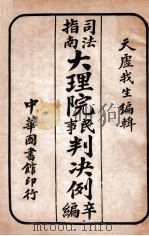 天虛我生編輯
司法
指南
大理院民事判決例辛編
中華圖書館印行